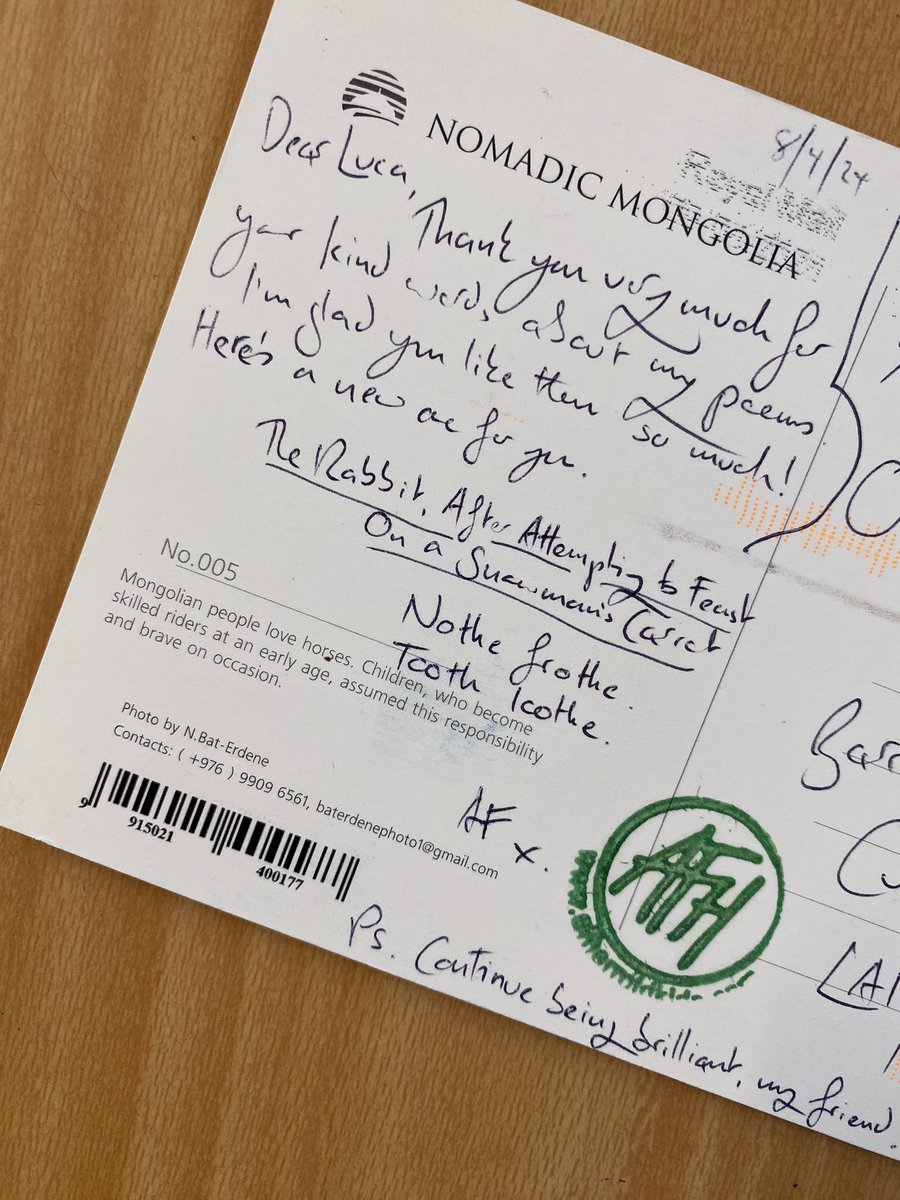 8/4/24
NOMADIC MONGOLIA
Royal Mail
Dear Luca,
Thank you very much for
your kind words about my poems
I'm glad you like them so much!
Here's a new one for you.
The Rabbit, After Attempting to Feast
On a Snowman's Carrot
Nothe frothe.
Tooth loothe.
AF x.
No.005
Mongolian people love horses. Children, who become
skilled riders at an early age, assumed this responsibility
and brave on occasion.
Photo by N.Bat-Erdene
Contacts: ( +976 ) 9909 6561, baterdenephoto1@gmail.com
9 915021 400177
AFH
Ps. Continue being brilliant, my friend.